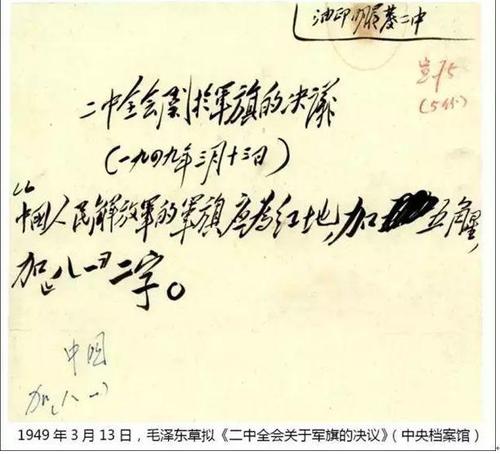 二中全会關於軍旗的决議
(一九四九年三月十三日)
“中國人民解放軍的軍旗应為红地,加五角星,
加“八一”二字。
中國
加(八一)
1949年3月13日,毛泽东草拟《二中全会关于军旗的决议》(中央档案馆)